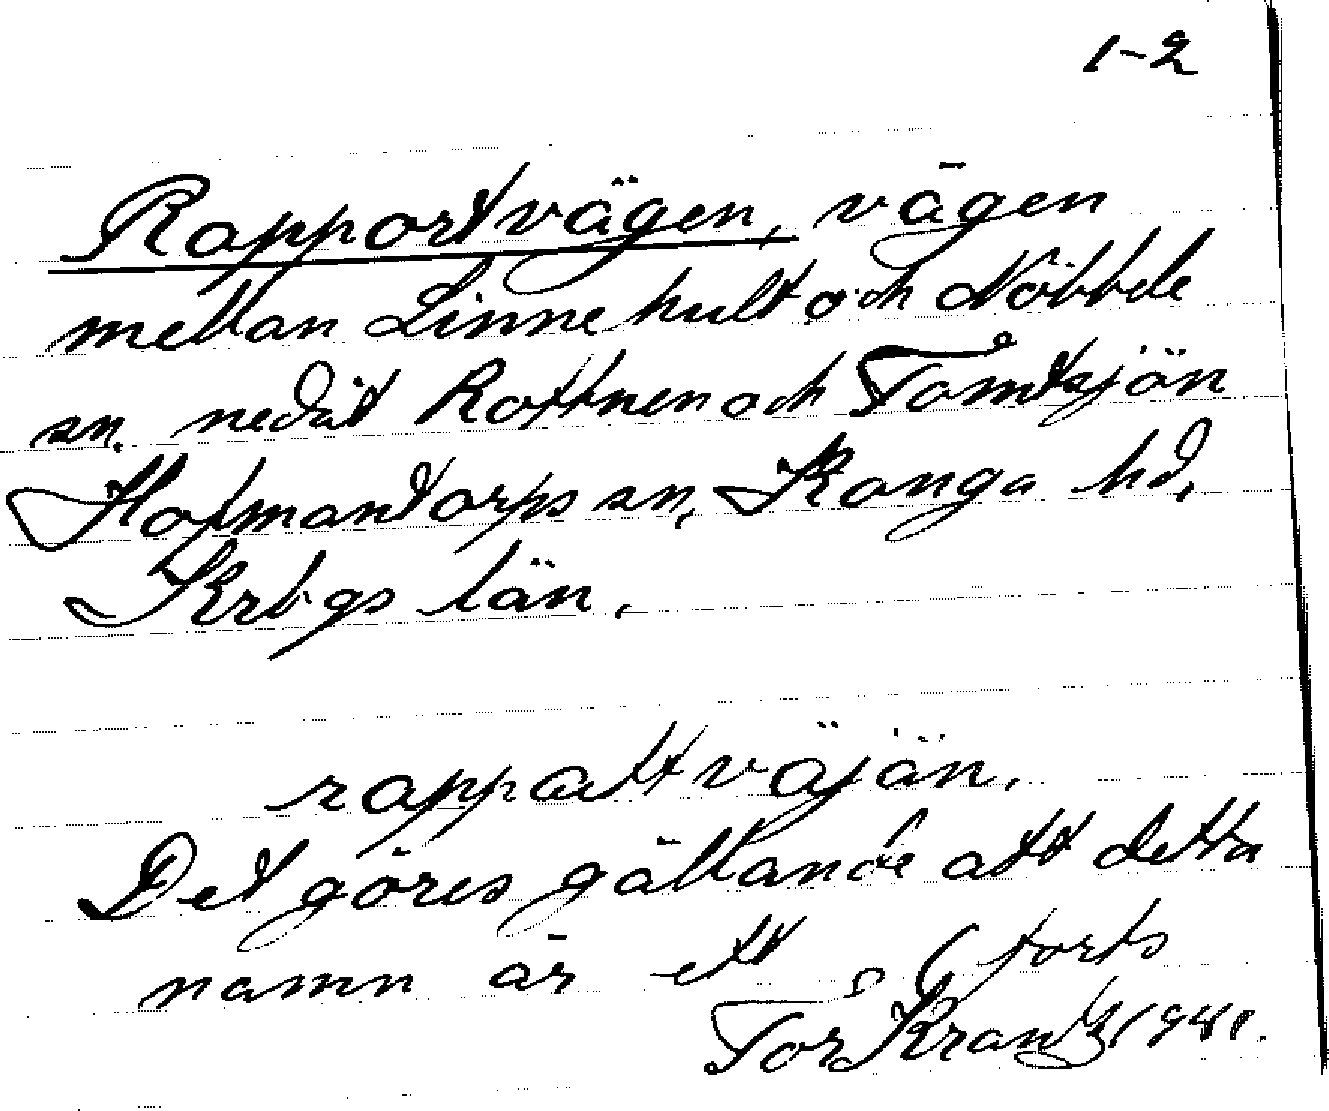 1-2
Rapportvägen, vägen
mellan Linnehult och Nöbbele
sn. nedåt Rottnen och Tomtsjön
Hofmantorps sn. Konga hd.
Krbgs län.
rappattväjän.
Det göres gällande att detta
namn är ett forts
Tor Krantz 1941.